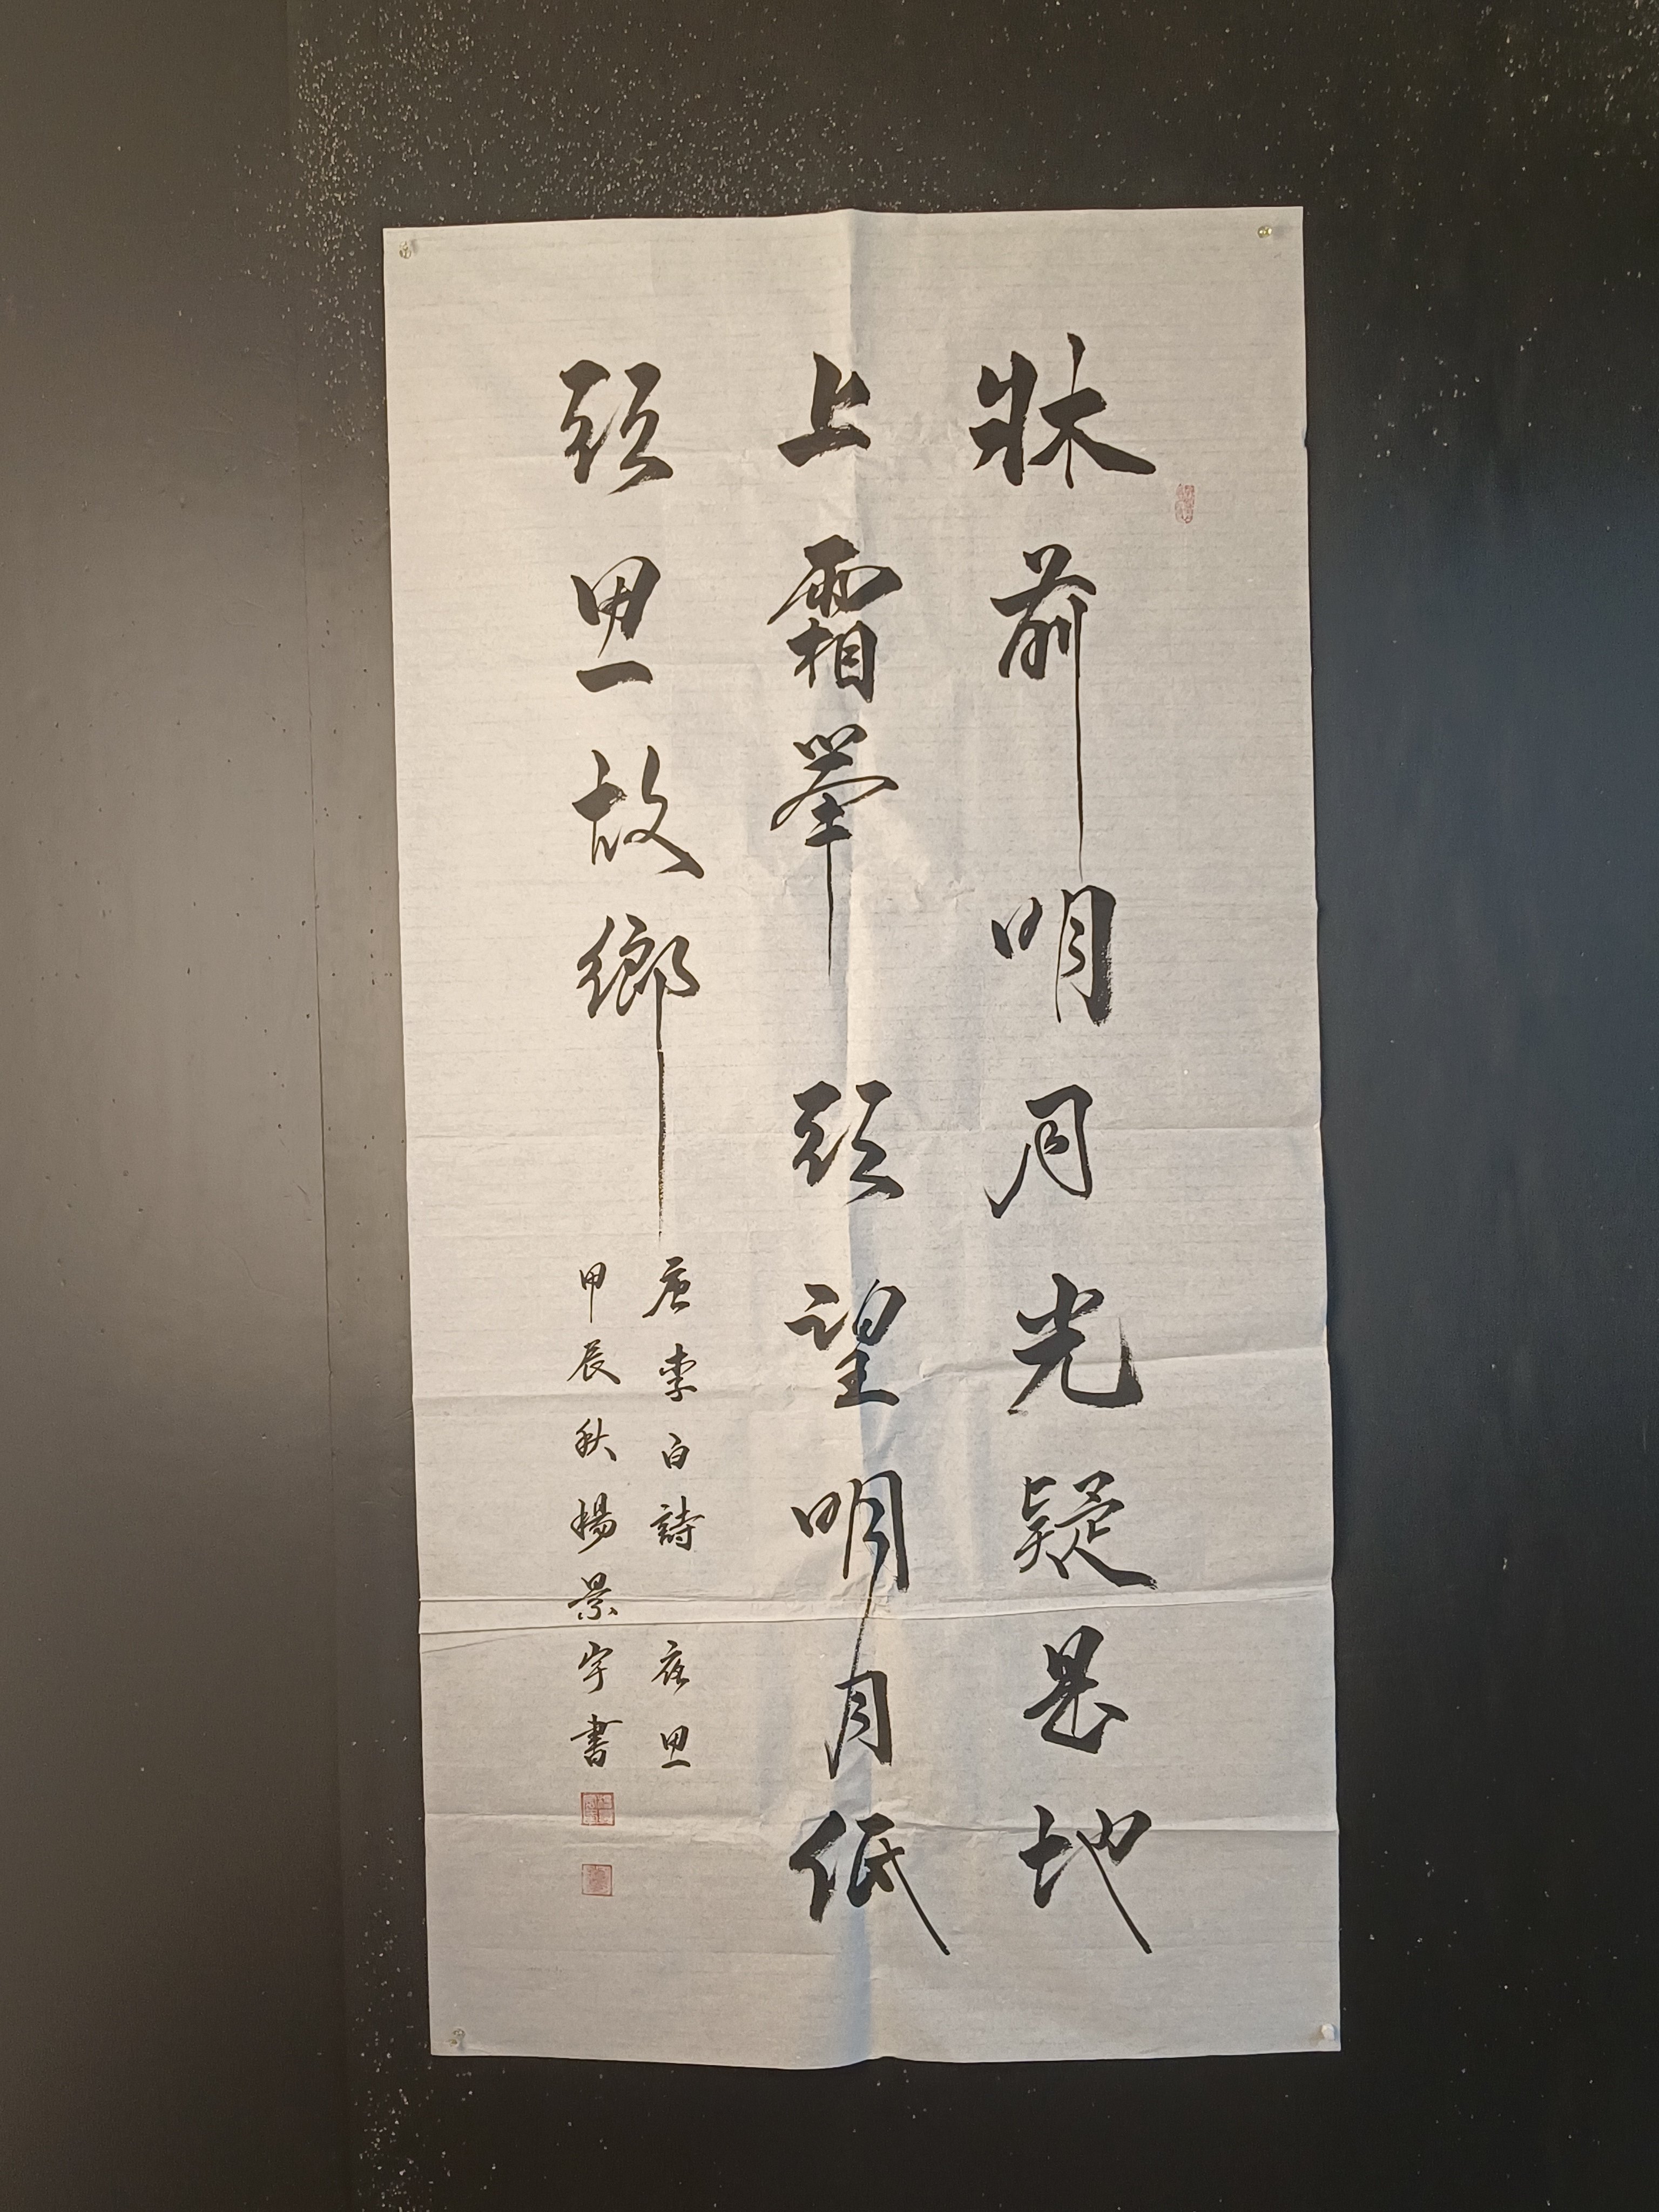 牀前明月光疑是地
上霜舉頭望明月低
頭思故鄉
唐李白詩 夜思
甲辰秋楊景宇書